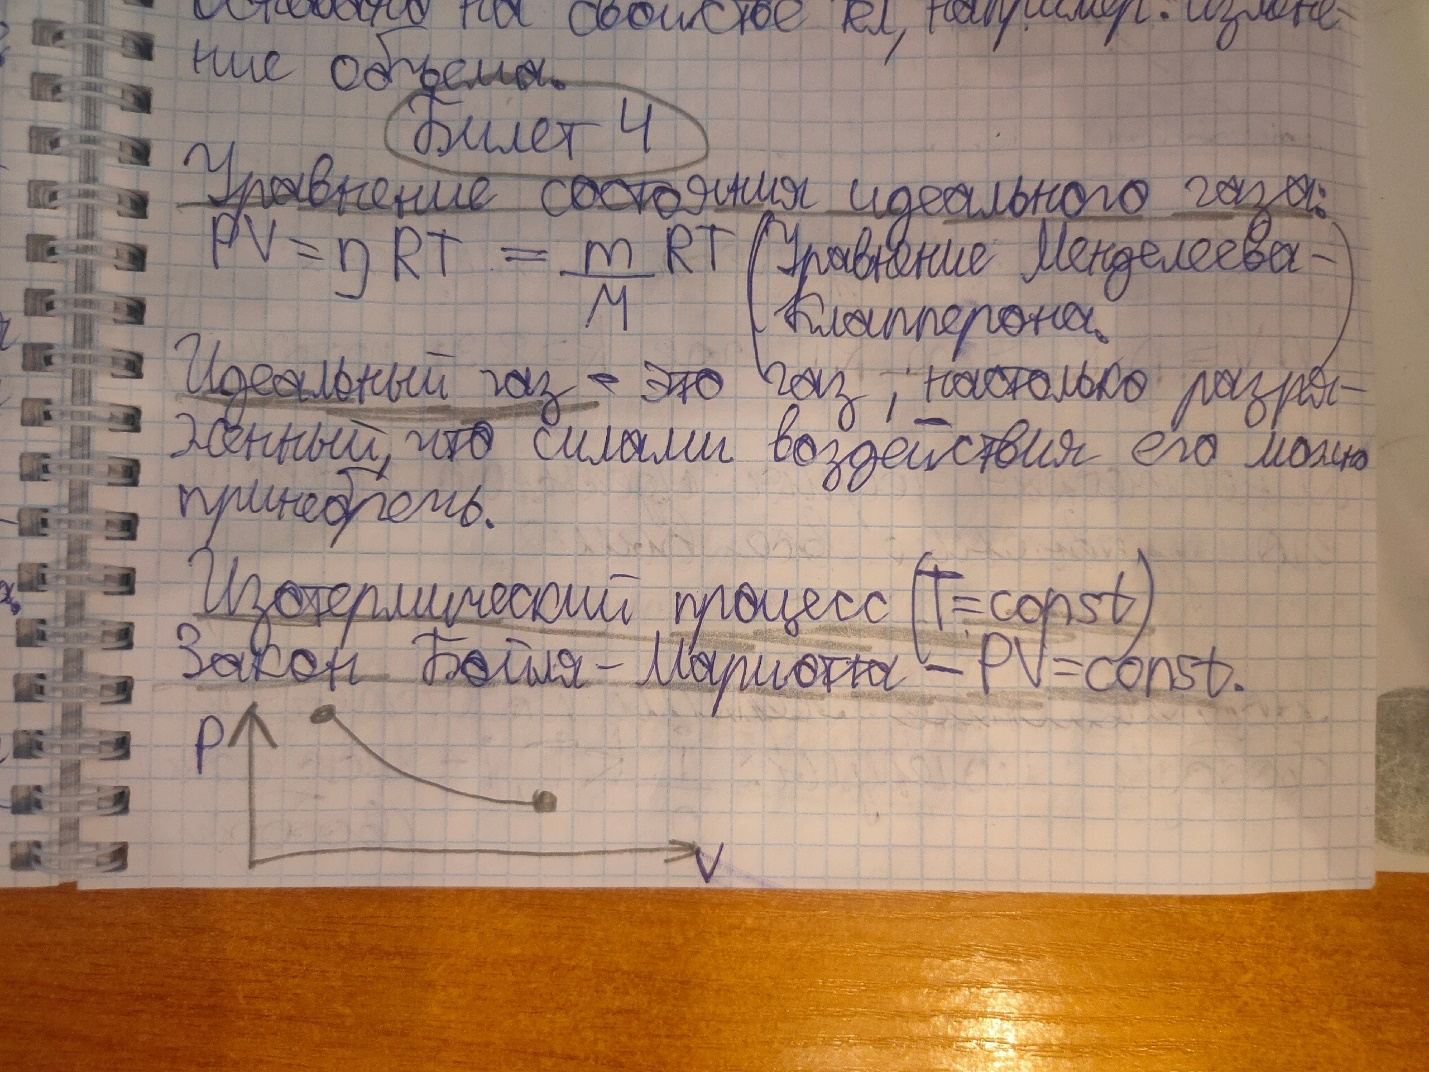 основано на свойстве тел, например: измене-
ние объема.
Билет 4
Уравнение состояния идеального газа:
PV = η RT = m/M RT (Уравнение Менделеева-
Клапперона.)
Идеальный газ - это газ, настолько разря-
женный, что силами воздействия его можно
принебречь.
Изотермический процесс (T=const)
Закон Бойля-Мариотта - PV=const.
P
V